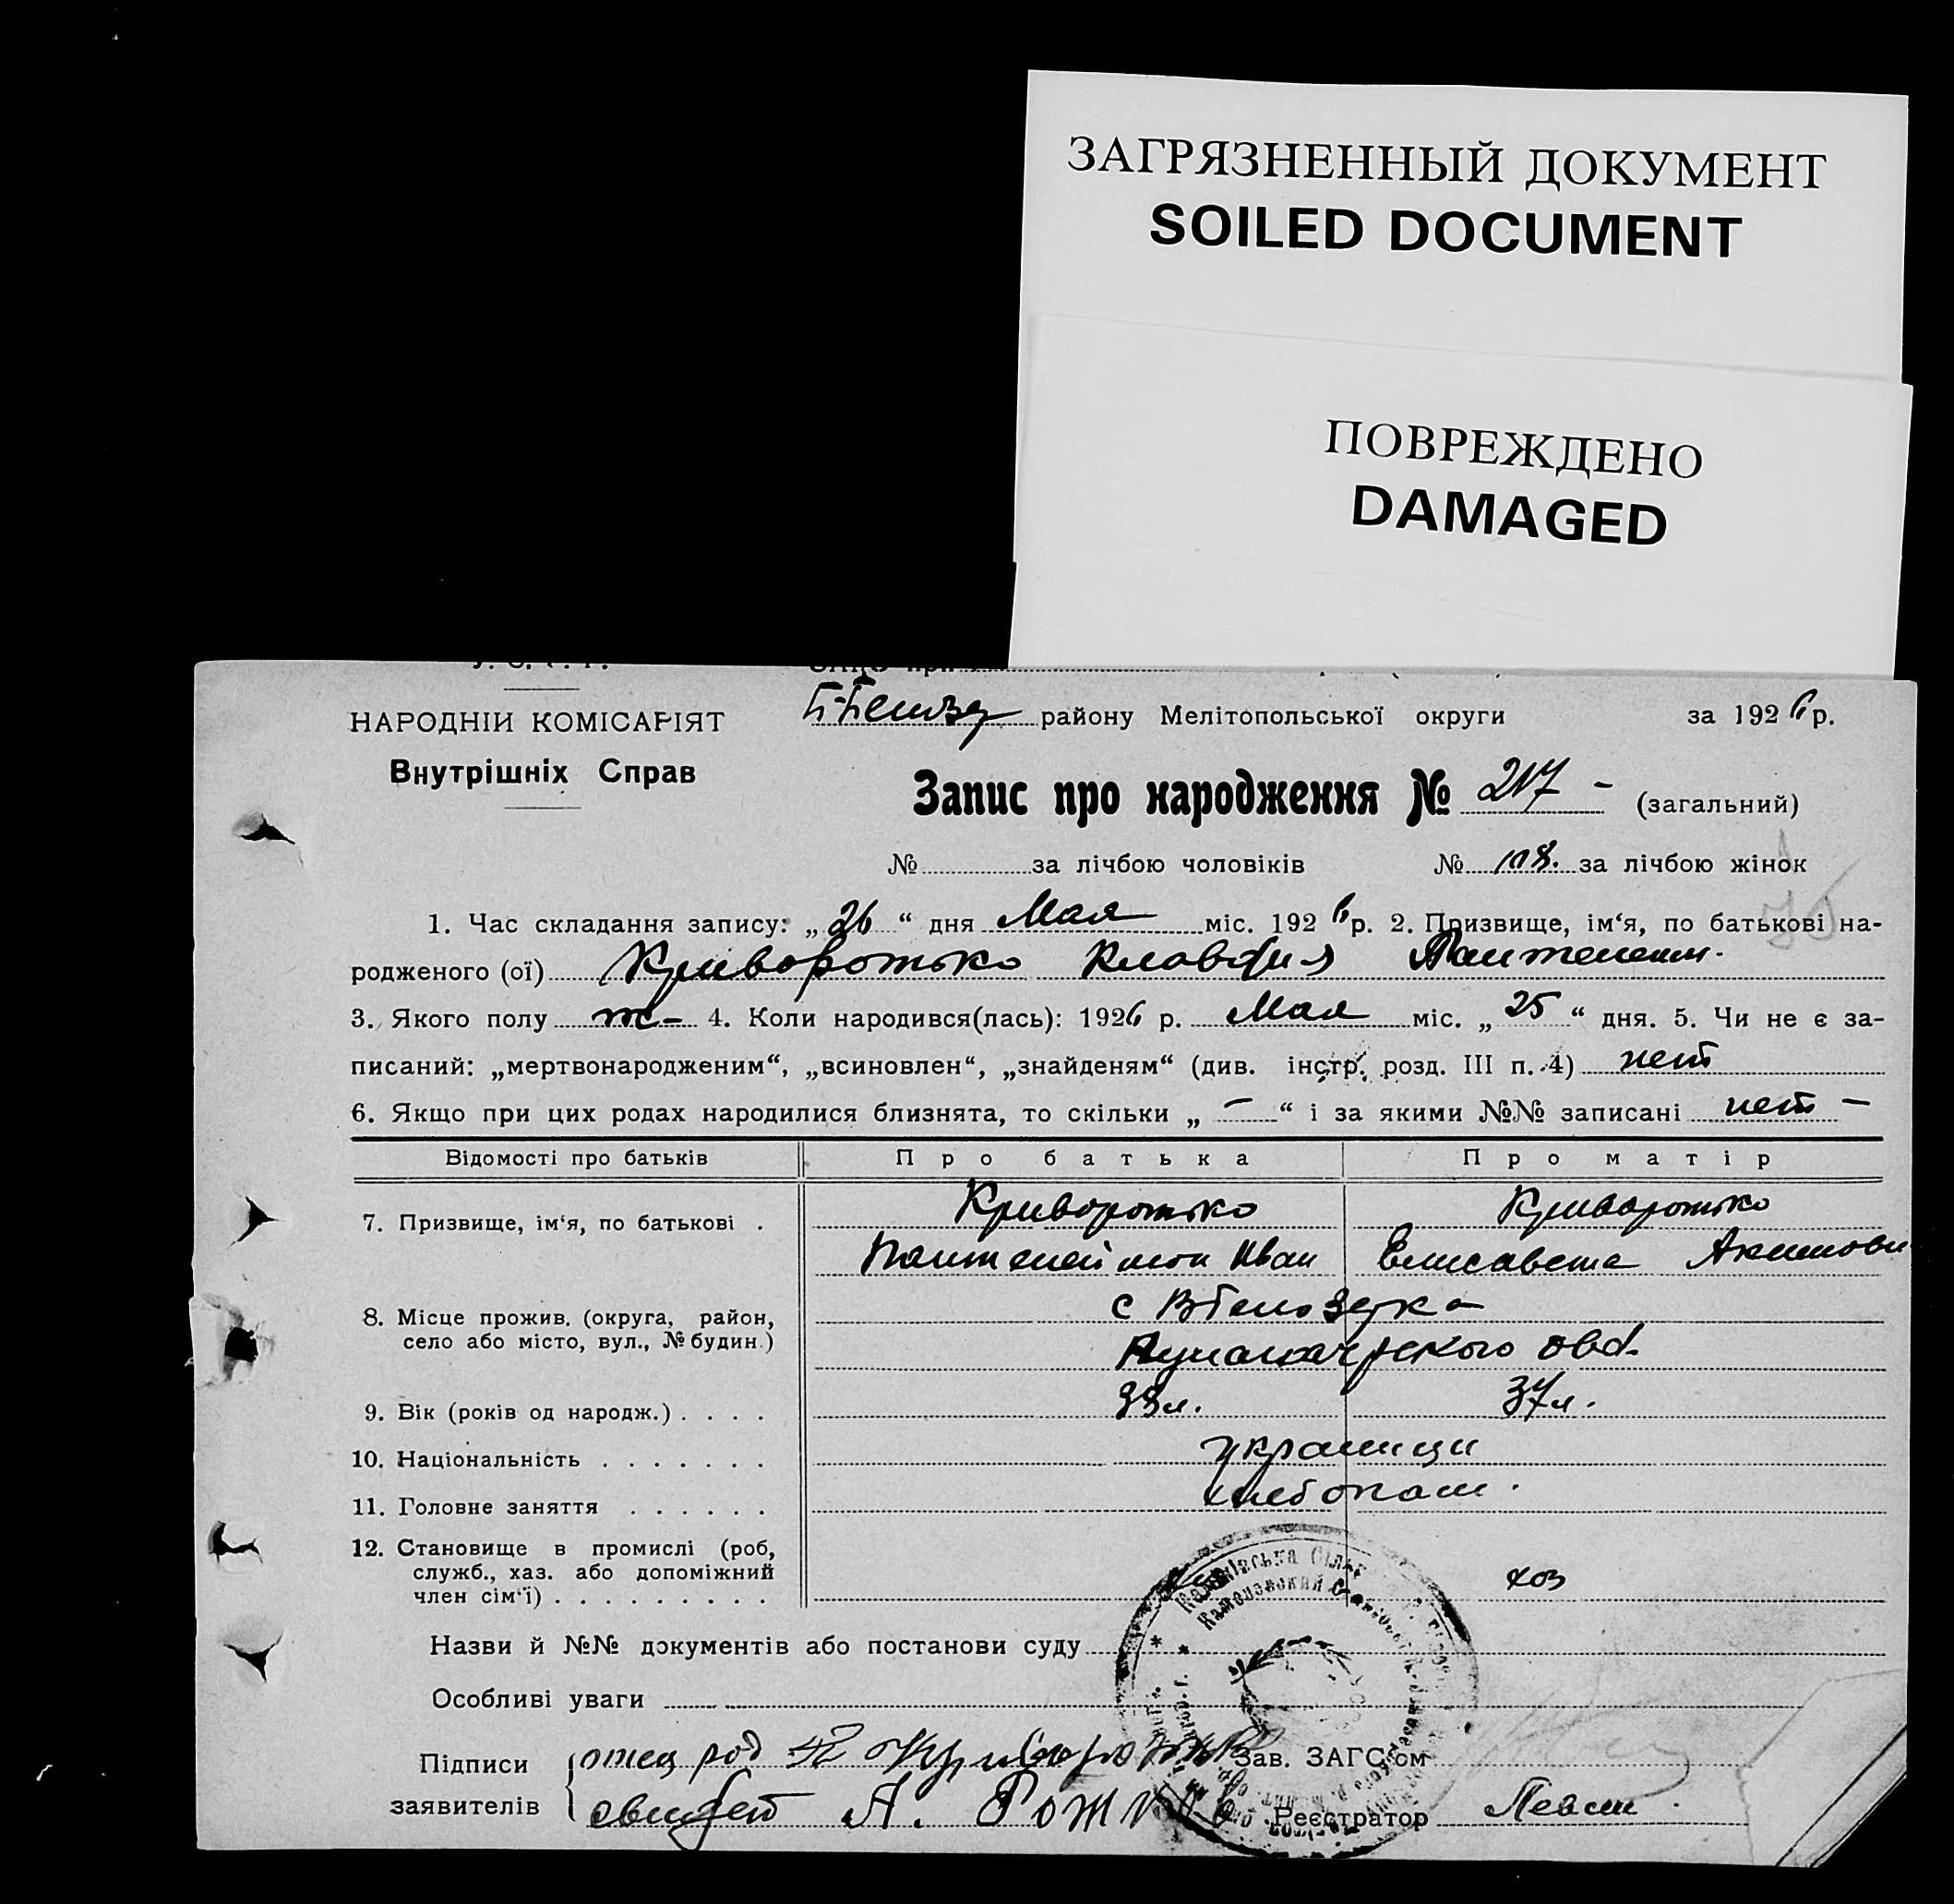 ЗАГРЯЗНЕННЫЙ ДОКУМЕНТ
SOILED DOCUMENT
ПОВРЕЖДЕНО
DAMAGED
НАРОДНІЙ КОМІСАРІЯТ
Внутрішніх Справ
району Мелітопольської округи за 1926 р.
Запис про народження № 217 - (загальний)
№ за лічбою чоловіків № 108. за лічбою жінок
1. Час складання запису: „26“ дня Мая міс. 1926 р. 2. Призвище, ім‘я, по батькові на-
родженого (ої) Криворотько Клавдия Пантелеим.
3. Якого полу ж- 4. Коли народився(лась): 1926 р. Мая міс. „25“ дня. 5. Чи не є за-
писаний: „мертвонародженим“, „всиновлен“, „знайденям“ (див. інстр. розд. III п. 4) нет
6. Якщо при цих родах народилися близнята, то скільки „ – “ і за якими №№ записані нет –
Відомості про батьків Про батька Про матір
7. Призвище, ім‘я, по батькові . Криворотько Криворотько
Пантелеймон Иван Елисавета Акимовн
8. Місце прожив. (округа, район,
село або місто, вул., № будин.)
с Вбелозерка
Луначарского
9. Вік (років од народж.) . . . . 39л. 37л.
10. Національність . . . . . . . украинци
11. Головне заняття . . . . . . хлебопаш.
12. Становище в промислі (роб,
служб., хаз. або допоміжний
член сім‘ї) . . . . . . . . . хоз
Назви й №№ документів або постанови суду
Особливі уваги
Підписи
заявителів
отец род Криворотько Зав. ЗАГС‘ом
свидет А. Реєстратор